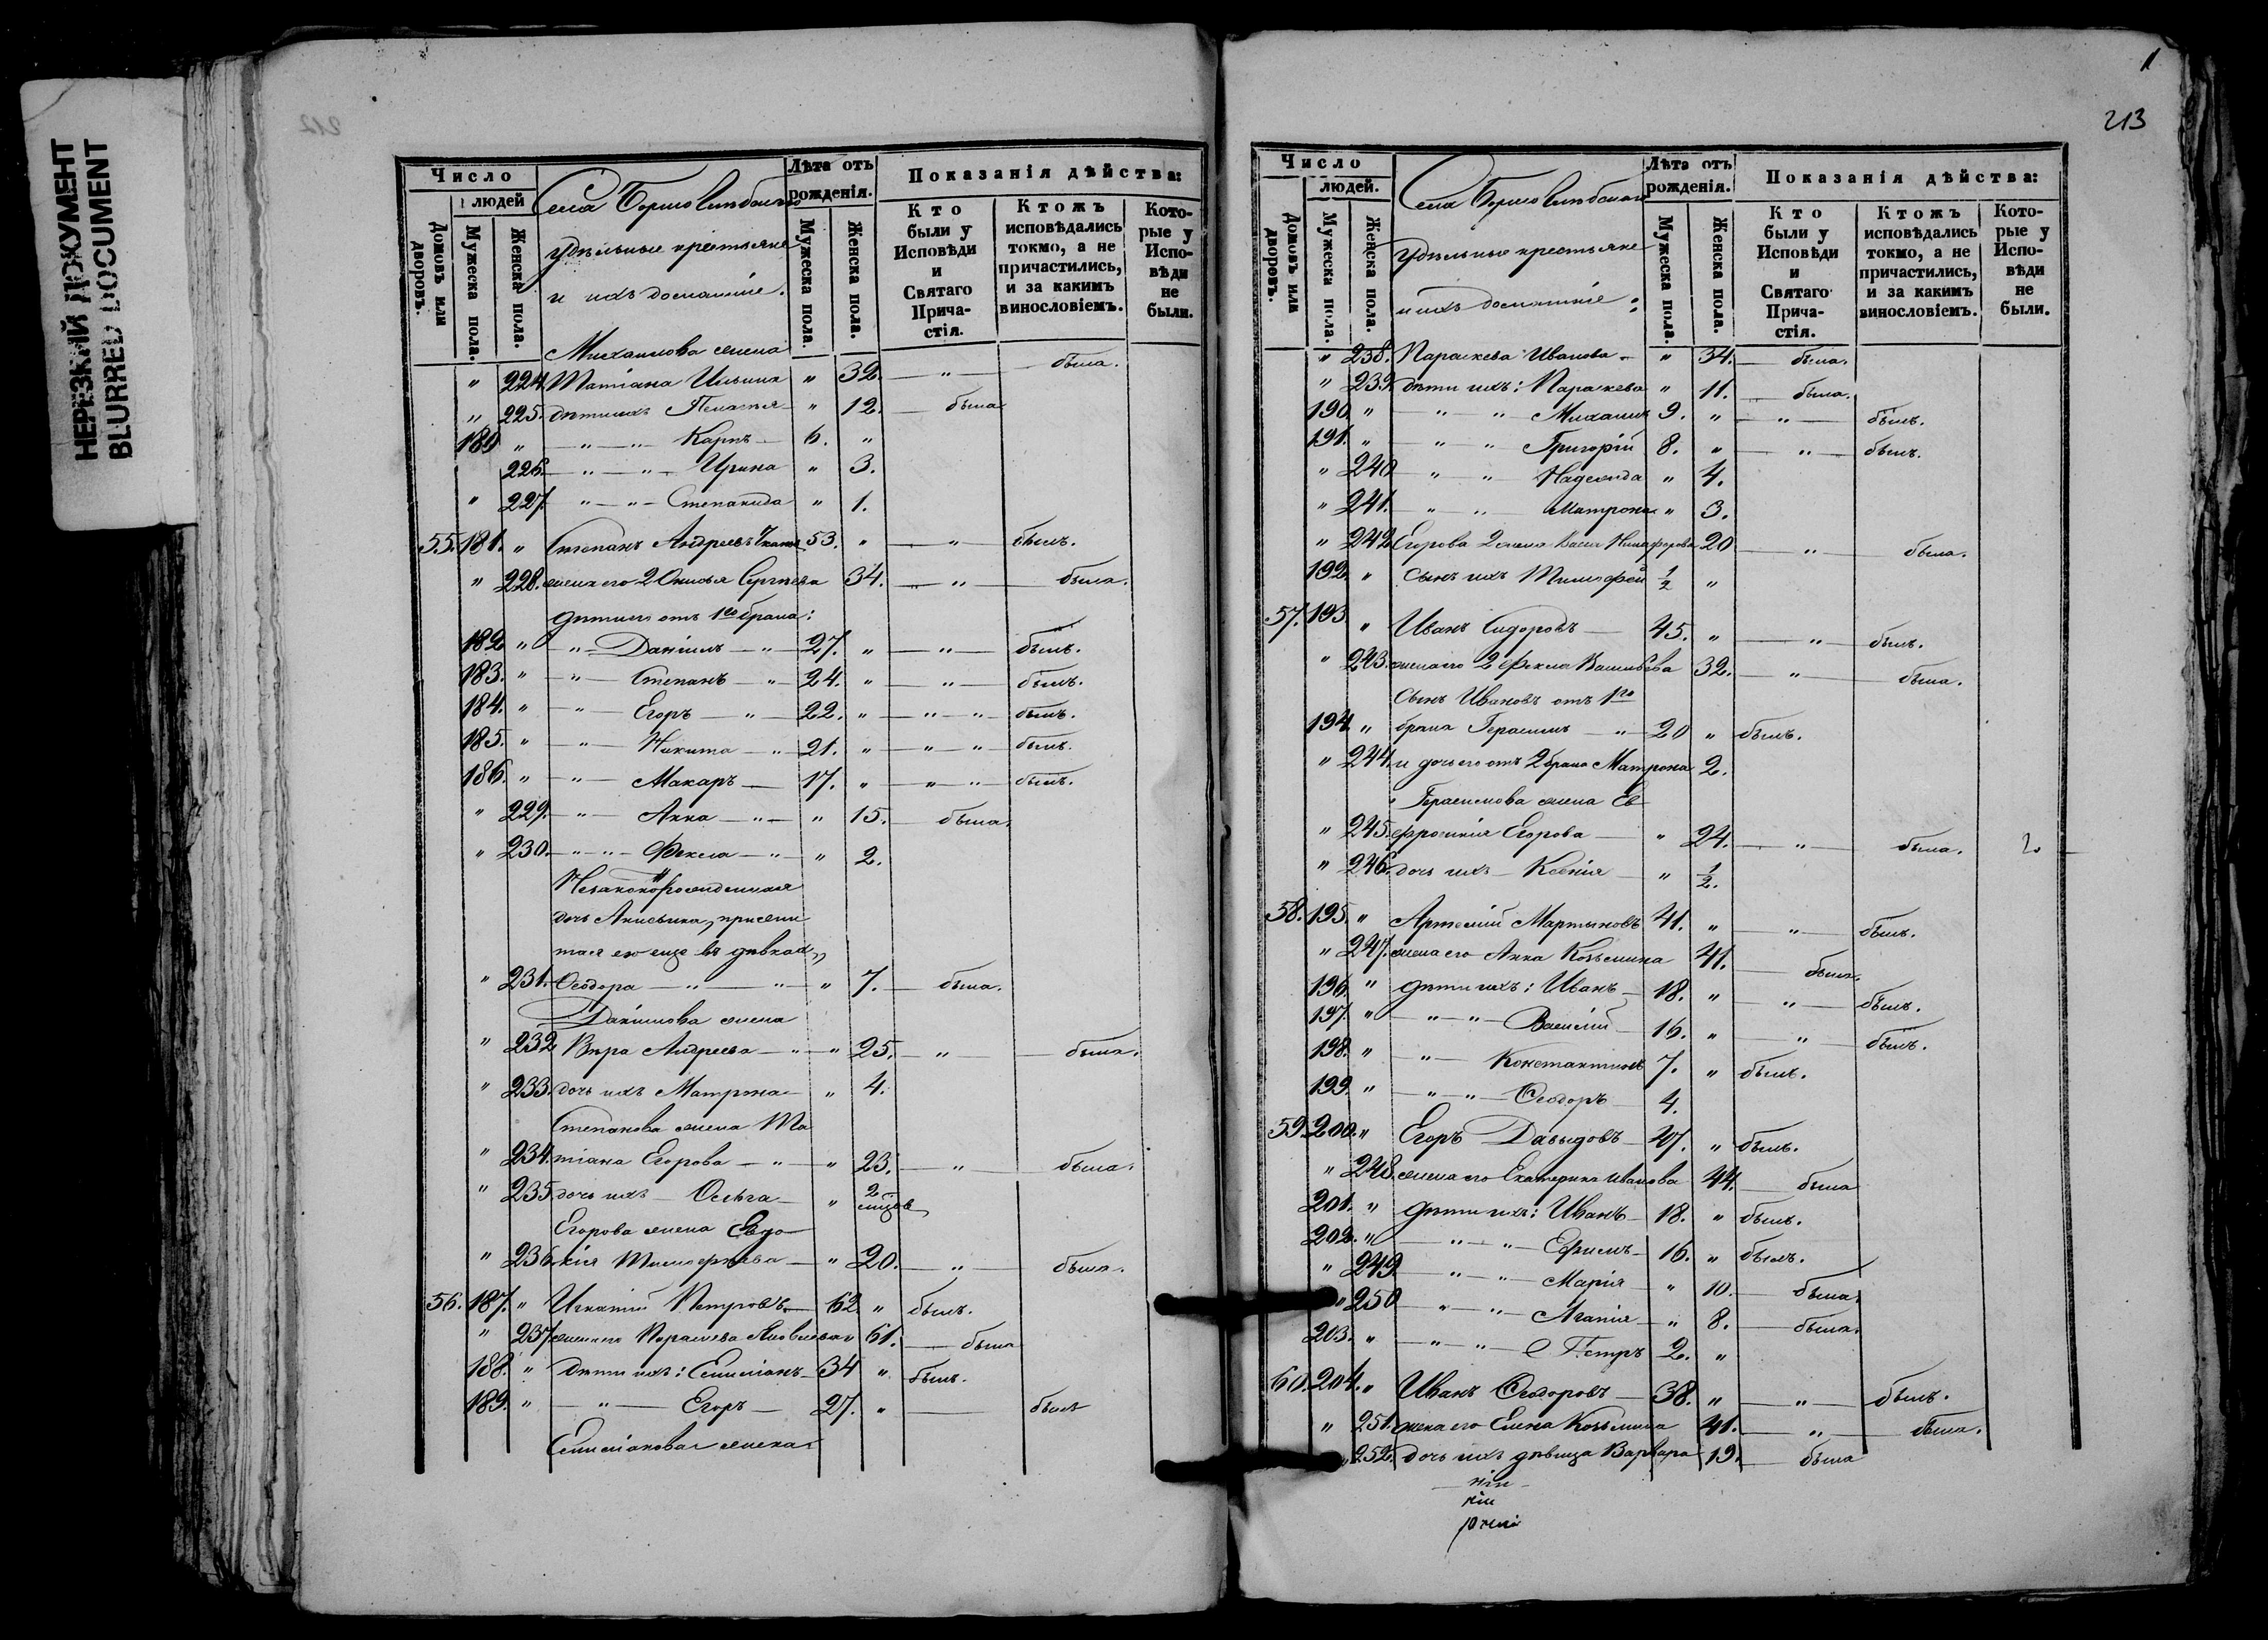 НЕРЕЗКИЙ ДОКУМЕНТ
BLURRED DOCUMENT
212
Число
людей
Домовъ или дворовъ.
Мужеска пола.
Женска пола.
Села
удѣльные крестьяне
и ихъ домашніе.
Лѣта отъ рожденія.
Мужеска пола.
Женска пола.
Показанія дѣйства:
Кто были у Исповѣди и Святаго Прича-стія.
Ктожъ исповѣдались токмо, а не причастились, и за какимъ винословіемъ.
Кото-рые у Испо-вѣди не были.
Михаилова жена
" 224. Татіана Ильина " 32. — " — была.
" 225. дѣти ихъ Пелагея — " 12. — была
180 " — " — " — Карпъ — 6. "
226. — " — " — Ирина " 3.
" 227. " — " — Степанида " 1.
55. 181. " Степанъ Андреевъ 53. " — " — былъ.
" 228. жена его 2 Сергѣева 34. — " — была.
дѣти его отъ 1го брака:
182 " — " — Даніилъ — " — 27. " — " — былъ.
183. " — " — Степанъ — " — 24. " — " — былъ.
184. " — " — Егоръ — " — 22. " — " — " — былъ.
185. " — " — Никита — " — 21. " — " — " былъ.
186. " — " — Макаръ — 17. " — " — " — былъ.
" 229. — " — Анна — " — " 15. — была.
" 230. — " — " — Фекла — " — " 2.
Незаконорожденная
дочь Анисьина, прижи
тая ею еще въ дѣвкахъ,
" 231. Ѳеодора — " — " — " 7. — была.
Даніилова жена
" 232 Вѣра Андреева — " — " 25. — " — была.
" 233. дочь ихъ Матрона — " 4.
Степанова жена Та
" 234. тіана Егорова — " — " 23. — " — была.
" 235. дочь ихъ — Ольга — " 2
Егорова жена Евдо
" 236. кія Тимофѣева — " 20. — " — была.
56. 187. " Игнатій Петровъ — 62 " былъ.
" 237. жена его Параскева Яковлева " 61. — была
188. " дѣти ихъ: Емиліанъ — 34 " былъ.
189. " — " — Егоръ — 27. " — былъ
Емиліанова жена
1
213
Число
людей.
Домовъ или дворовъ.
Мужеска пола.
Женска пола.
Села
удѣльные крестьяне
и ихъ домашніе:
Лѣта отъ рожденія.
Мужеска пола.
Женска пола.
Показанія дѣйства:
Кто были у Исповѣди и Святаго Прича-стія.
Ктожъ исповѣдались токмо, а не причастились, и за какимъ винословіемъ.
Кото-рые у Испо-вѣди не были.
" 238. Параскева Иванова — " 34. — была.
" 239. дѣти ихъ: Параскева " 11. — была.
190. " " — " Михаилъ 9. " — " — былъ.
191. " " — " Григорій 8. " — " — былъ.
" 240 " — " Надежда " 4.
" 241. — " — " Матрона " 3.
" 242 Егорова 2 жена Васса Никифорова 20 — " — была.
192. " Сынъ ихъ Тимофей 1/2 "
57. 193 " Иванъ Сидоровъ — 45. " — " — былъ.
" 243. жена его 2 Фекла Васильева 32. — " — была.
Сынъ Ивановъ отъ 1го
194. " брака Герасимъ — " — 20 " былъ.
" 244. и дочь его отъ 2 брака Матрона 2.
Герасимова жена Ев
" 245. фросинія Егорова — " 24. — " — была. 2
" 246. дочь ихъ — Ксенія — " 1/2.
58. 195. " Артемій Мартыновъ 41. " — " — былъ.
" 247. жена его Анна Козьмина 41. — была.
196. " дѣти ихъ: Иванъ — 18. " — " — былъ.
197. " — " — " — Василій — 16. " — " — былъ.
198. " — " — Константинъ 7. " былъ.
199. " — " — " — Ѳеодоръ 4.
59. 200. " Егоръ Давыдовъ — 47. " былъ.
" 248. жена его Екатерина Иванова 44. — была
201. " дѣти ихъ: Иванъ — 18. " былъ.
202. " — " — " — Ефимъ — 16. " былъ.
" 249. — " — " — Марія " 10. — была.
" 250 — " — " — Агапія — " 8. — была.
203. " — " — " — Петръ 2. "
60. 204. " Иванъ Ѳеодоровъ — 38. " — " — былъ.
" 251. жена его Елена Козьмина 41. — " — была.
" 252. дочь ихъ дѣвица Варвара 19. — была